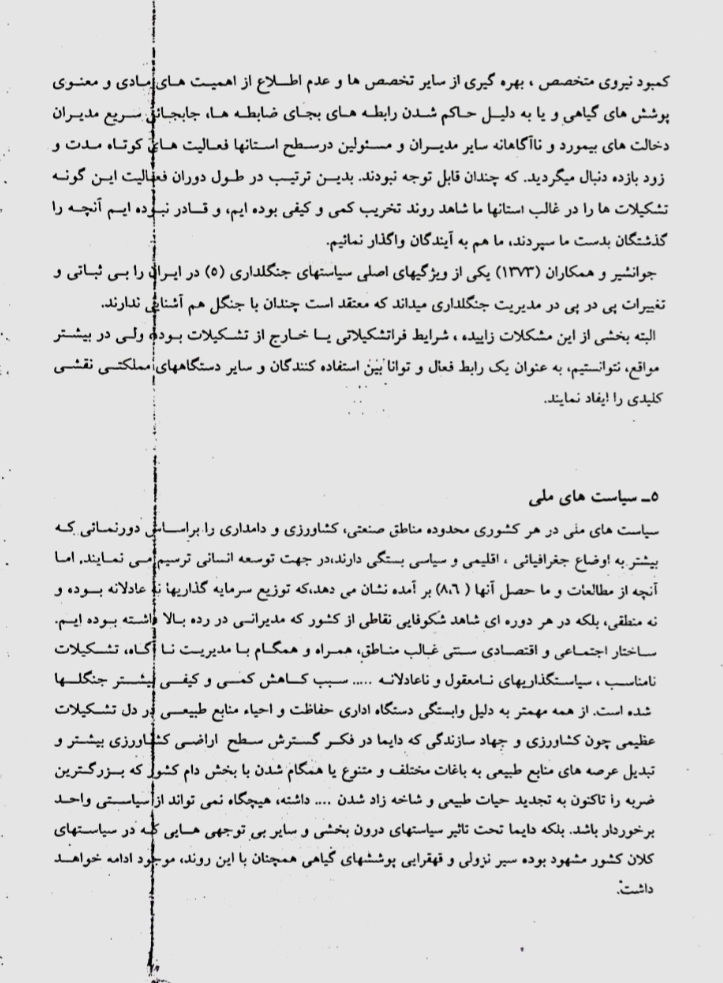 کمبود نیروی متخصص ، بهره گیری از سایر تخصص ها و عدم اطلاع از اهمیت های مادی و معنوی
پوشش های گیاهی و یا به دلیل حاکم شدن رابطه های بجای ضابطه ها، جابجائی سریع مدیران
دخالت های بیمورد و ناآگاهانه سایر مدیران و مسئولین درسطح استانها فعالیت های کوتاه مدت و
زود بازده دنبال میگردید. که چندان قابل توجه نبودند. بدین ترتیب در طول دوران فعالیت این گونه
تشکیلات ها را در غالب استانها ما شاهد روند تخریب کمی و کیفی بوده ایم، و قادر نبوده ایم آنچه را
گذشتگان بدست ما سپردند، ما هم به آیندگان واگذار نمائیم.
جوانشیر و همکاران (۱۳۷۳) یکی از ویژگیهای اصلی سیاستهای جنگلداری (۵) در ایران را بی ثباتی و
تغییرات پی در پی در مدیریت جنگلداری میداند که معتقد است چندان با جنگل هم آشنایی ندارند.
البته بخشی از این مشکلات زاییده ، شرایط فراتشکیلاتی یا خارج از تشکیلات بوده ولی در بیشتر
مواقع، نتوانستیم، به عنوان یک رابط فعال و توانا بین استفاده کنندگان و سایر دستگاههای مملکتی نقشی
کلیدی را ایفاد نمایند.
۵ـ سیاست های ملی
سیاست های ملی در هر کشوری محدوده مناطق صنعتی، کشاورزی و دامداری را براساس دورنمائی که
بیشتر به اوضاع جغرافیائی ، اقلیمی و سیاسی بستگی دارند،در جهت توسعه انسانی ترسیم می نمایند. اما
آنچه از مطالعات و ما حصل آنها ( ۸،۶) بر آمده نشان می دهد،که توزیع سرمایه گذاریها نه عادلانه بوده و
نه منطقی، بلکه در هر دوره ای شاهد شکوفایی نقاطی از کشور که مدیرانی در رده بالا داشته بوده ایم.
ساختار اجتماعی و اقتصادی سنتی غالب مناطق، همراه و همگام با مدیریت نا آگاه، تشکیلات
نامناسب ، سیاستگذاریهای نامعقول و ناعادلانه ..... سبب کاهش کمی و کیفی بیشتر جنگلها
شده است. از همه مهمتر به دلیل وابستگی دستگاه اداری حفاظت و احیاء منابع طبیعی در دل تشکیلات
عظیمی چون کشاورزی و جهاد سازندگی که دایما در فکر گسترش سطح اراضی کشاورزی بیشتر و
تبدیل عرصه های منابع طبیعی به باغات مختلف و متنوع یا همگام شدن با بخش دام کشور که بزرگترین
ضربه را تاکنون به تجدید حیات طبیعی و شاخه زاد شدن .... داشته، هیچگاه نمی تواند از سیاستی واحد
برخوردار باشد. بلکه دایما تحت تاثیر سیاستهای درون بخشی و سایر بی توجهی هایی که در سیاستهای
کلان کشور مشهود بوده سیر نزولی و قهقرایی پوششهای گیاهی همچنان با این روند، موجود ادامه خواهد
داشت.